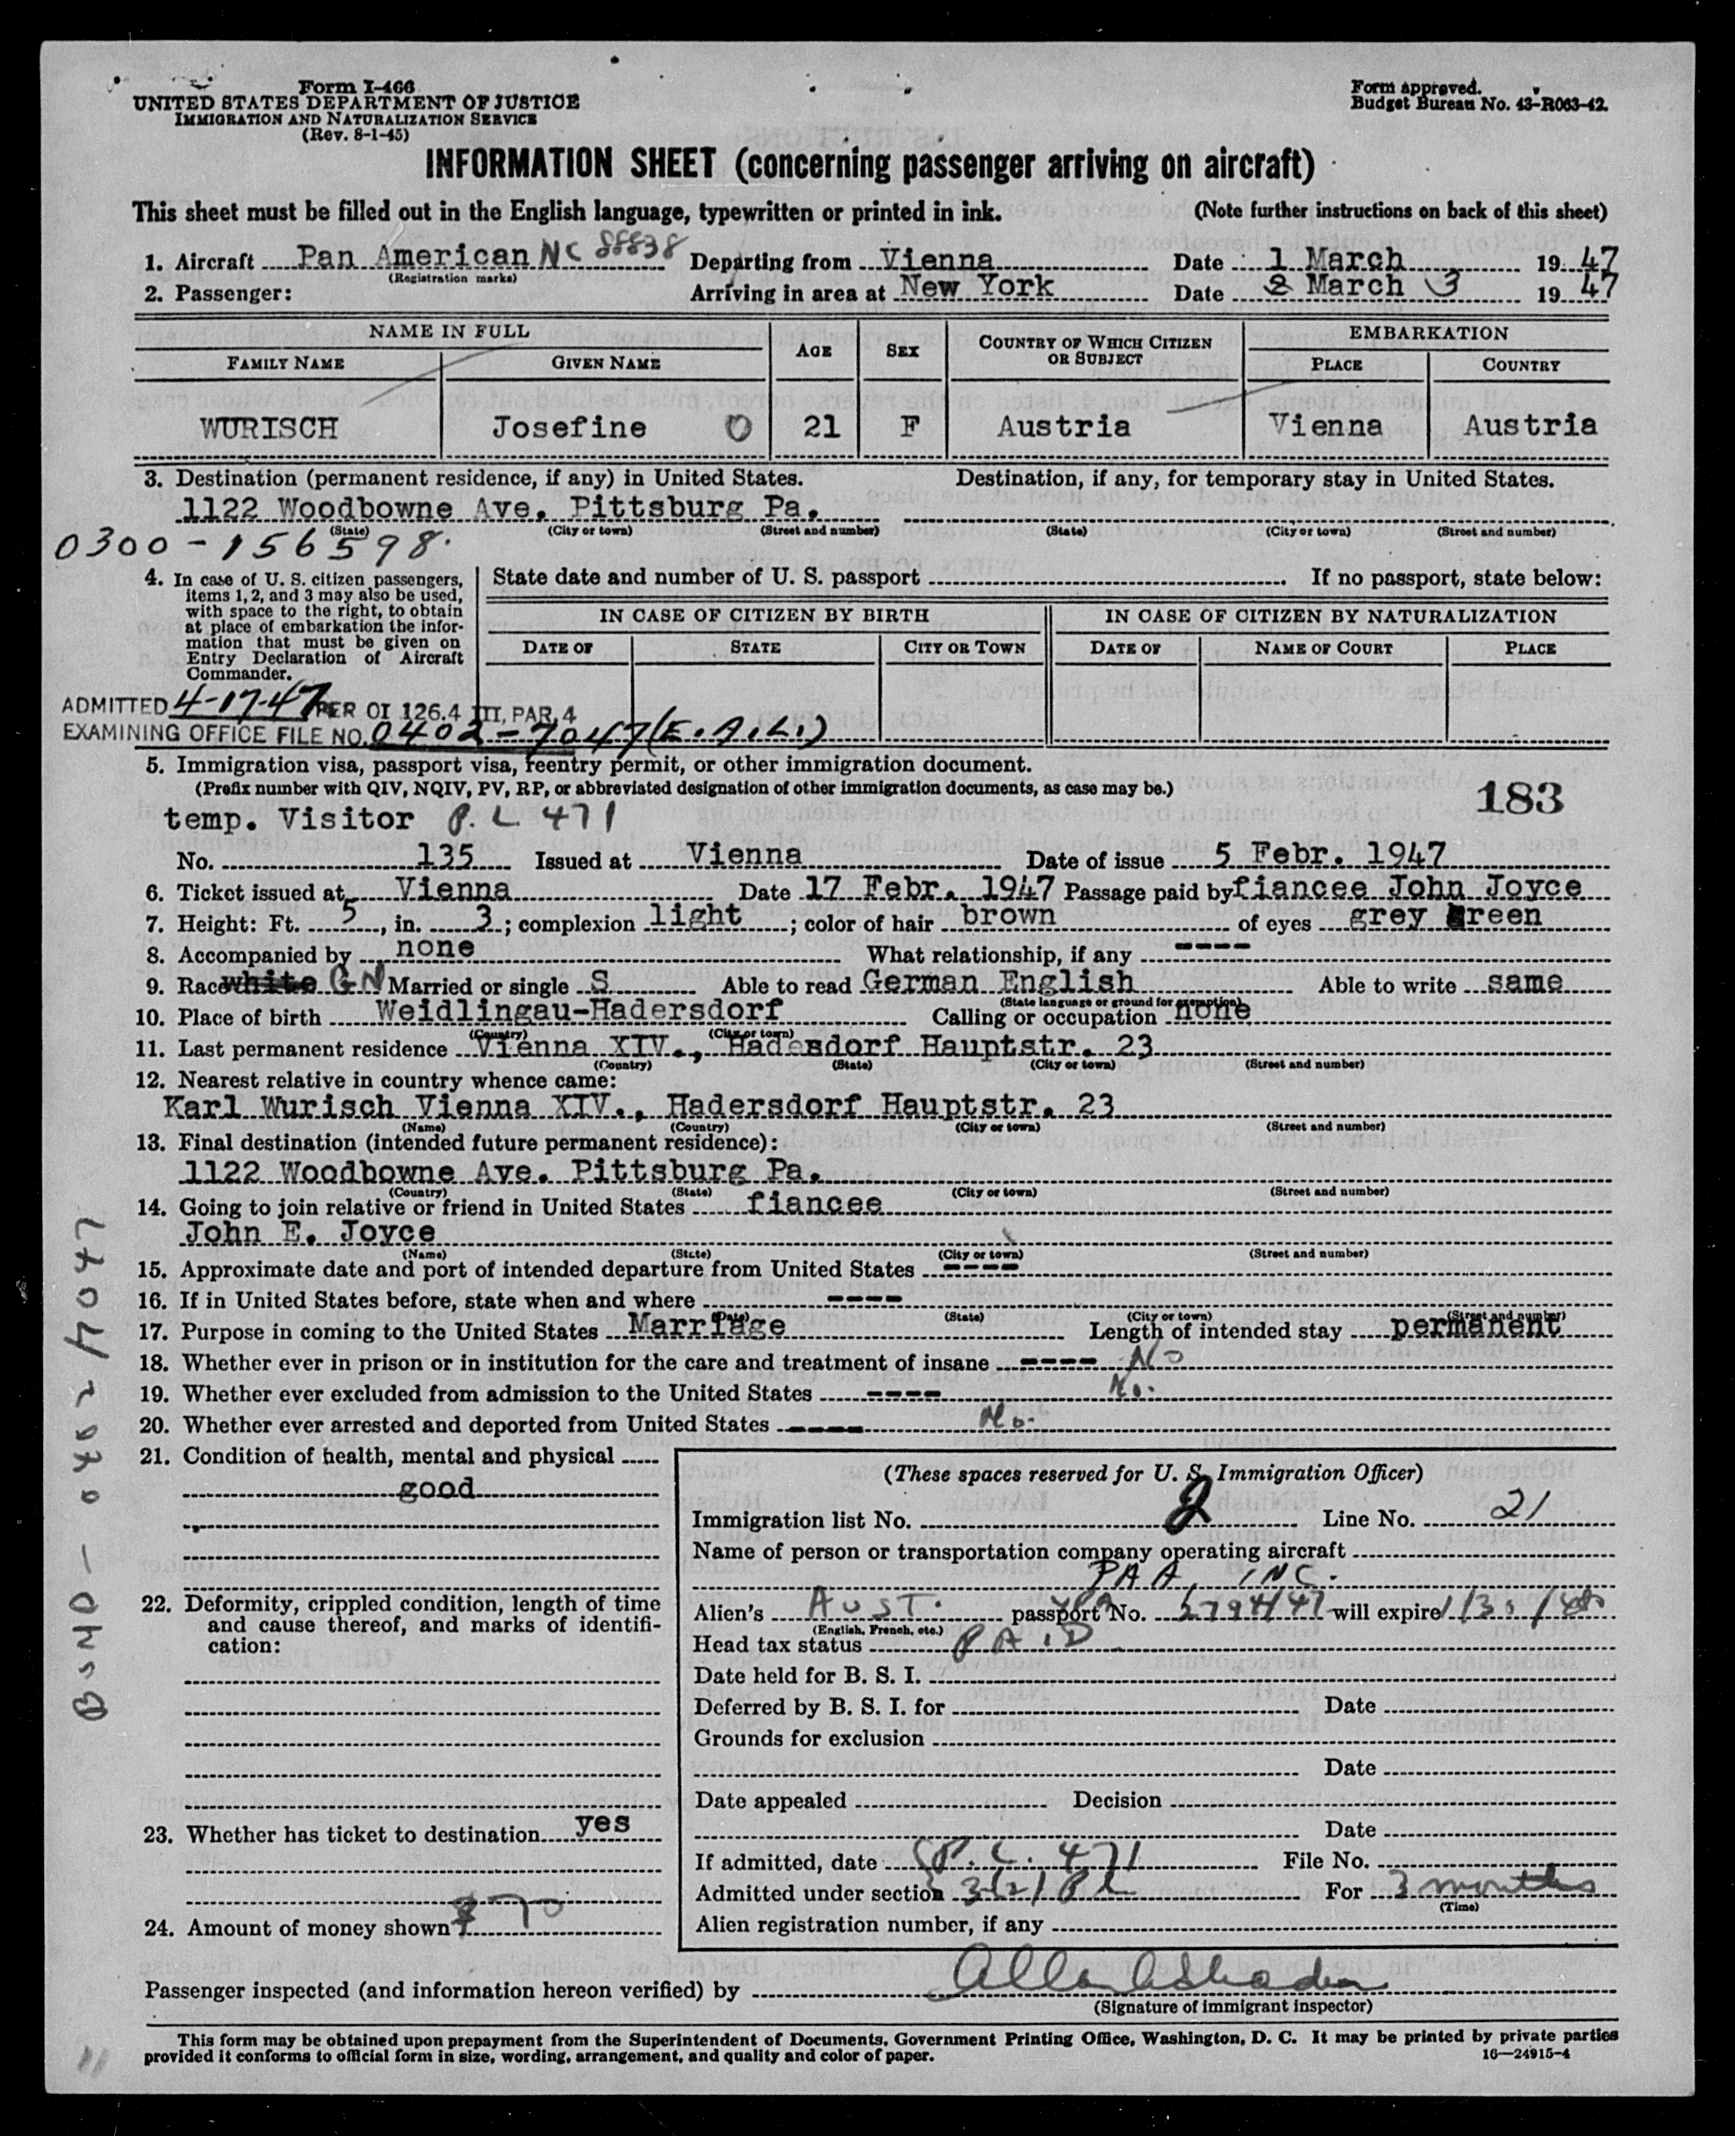 Form I-466
UNITED STATES DEPARTMENT OF JUSTICE
IMMIGRATION AND NATURALIZATION SERVICE
(Rev. 8-1-45)
Form approved.
Budget Bureau No. 43-R063-42.
INFORMATION SHEET (concerning passenger arriving on aircraft)
This sheet must be filled out in the English language, typewritten or printed in ink. (Note further instructions on back of this sheet)
1. Aircraft Pan American NC 88838 Departing from Vienna Date 1 March 1947
(Registration marks)
2. Passenger: Arriving in area at New York Date 2 March 3 1947
NAME IN FULL AGE SEX COUNTRY OF WHICH CITIZEN OR SUBJECT EMBARKATION
FAMILY NAME GIVEN NAME PLACE COUNTRY
WURISCH Josefine O 21 F Austria Vienna Austria
3. Destination (permanent residence, if any) in United States. Destination, if any, for temporary stay in United States.
1122 Woodbowne Ave. Pittsburg Pa.
(State) (City or town) (Street and number) (State) (City or town) (Street and number)
0300-156598.
4. In case of U. S. citizen passengers, items 1, 2, and 3 may also be used, with space to the right, to obtain at place of embarkation the information that must be given on Entry Declaration of Aircraft Commander.
State date and number of U. S. passport If no passport, state below:
IN CASE OF CITIZEN BY BIRTH IN CASE OF CITIZEN BY NATURALIZATION
DATE OF STATE CITY OR TOWN DATE OF NAME OF COURT PLACE
ADMITTED 4-17-47 PER OI 126.4 III, PAR. 4
EXAMINING OFFICE FILE NO. 0402-7047 (E.A.L.)
5. Immigration visa, passport visa, reentry permit, or other immigration document.
(Prefix number with QIV, NQIV, PV, RP, or abbreviated designation of other immigration documents, as case may be.)
183
temp. Visitor P. L 471
No. 135 Issued at Vienna Date of issue 5 Febr. 1947
6. Ticket issued at Vienna Date 17 Febr. 1947 Passage paid by fiancee John Joyce
7. Height: Ft. 5, in. 3; complexion light; color of hair brown of eyes grey green
8. Accompanied by none What relationship, if any ----
9. Race white GN Married or single S Able to read German English Able to write same
(State language or ground for exemption)
10. Place of birth Weidlingau-Hadersdorf Calling or occupation none
(Country) (City or town)
11. Last permanent residence Vienna XIV., Hadesdorf Hauptstr. 23
(Country) (State) (City or town) (Street and number)
12. Nearest relative in country whence came:
Karl Wurisch Vienna XIV., Hadersdorf Hauptstr. 23
(Name) (Country) (City or town) (Street and number)
13. Final destination (intended future permanent residence):
1122 Woodbowne Ave. Pittsburg Pa.
(Country) (State) (City or town) (Street and number)
14. Going to join relative or friend in United States fiancee
John E. Joyce
(Name) (State) (City or town) (Street and number)
15. Approximate date and port of intended departure from United States ----
16. If in United States before, state when and where ----
(Date) (State) (City or town) (Street and number)
17. Purpose in coming to the United States Marriage Length of intended stay permanent
18. Whether ever in prison or in institution for the care and treatment of insane ---- No
19. Whether ever excluded from admission to the United States ---- No.
20. Whether ever arrested and deported from United States ---- No.
21. Condition of health, mental and physical
good
22. Deformity, crippled condition, length of time and cause thereof, and marks of identification:
23. Whether has ticket to destination yes
24. Amount of money shown $ 70
(These spaces reserved for U. S. Immigration Officer)
Immigration list No. 2 Line No. 21
Name of person or transportation company operating aircraft
PAA, INC.
Alien's AUST. passport No. 2794/47 will expire 1/30/48
(English, French, etc.)
Head tax status PAID
Date held for B. S. I.
Deferred by B. S. I. for Date
Grounds for exclusion
Date
Date appealed Decision
Date
If admitted, date P. L. 471 File No.
Admitted under section 3(2) For 3 months
(Time)
Alien registration number, if any
Passenger inspected (and information hereon verified) by
(Signature of immigrant inspector)
This form may be obtained upon prepayment from the Superintendent of Documents, Government Printing Office, Washington, D. C. It may be printed by private parties
provided it conforms to official form in size, wording, arrangement, and quality and color of paper. 16—24915-4
11